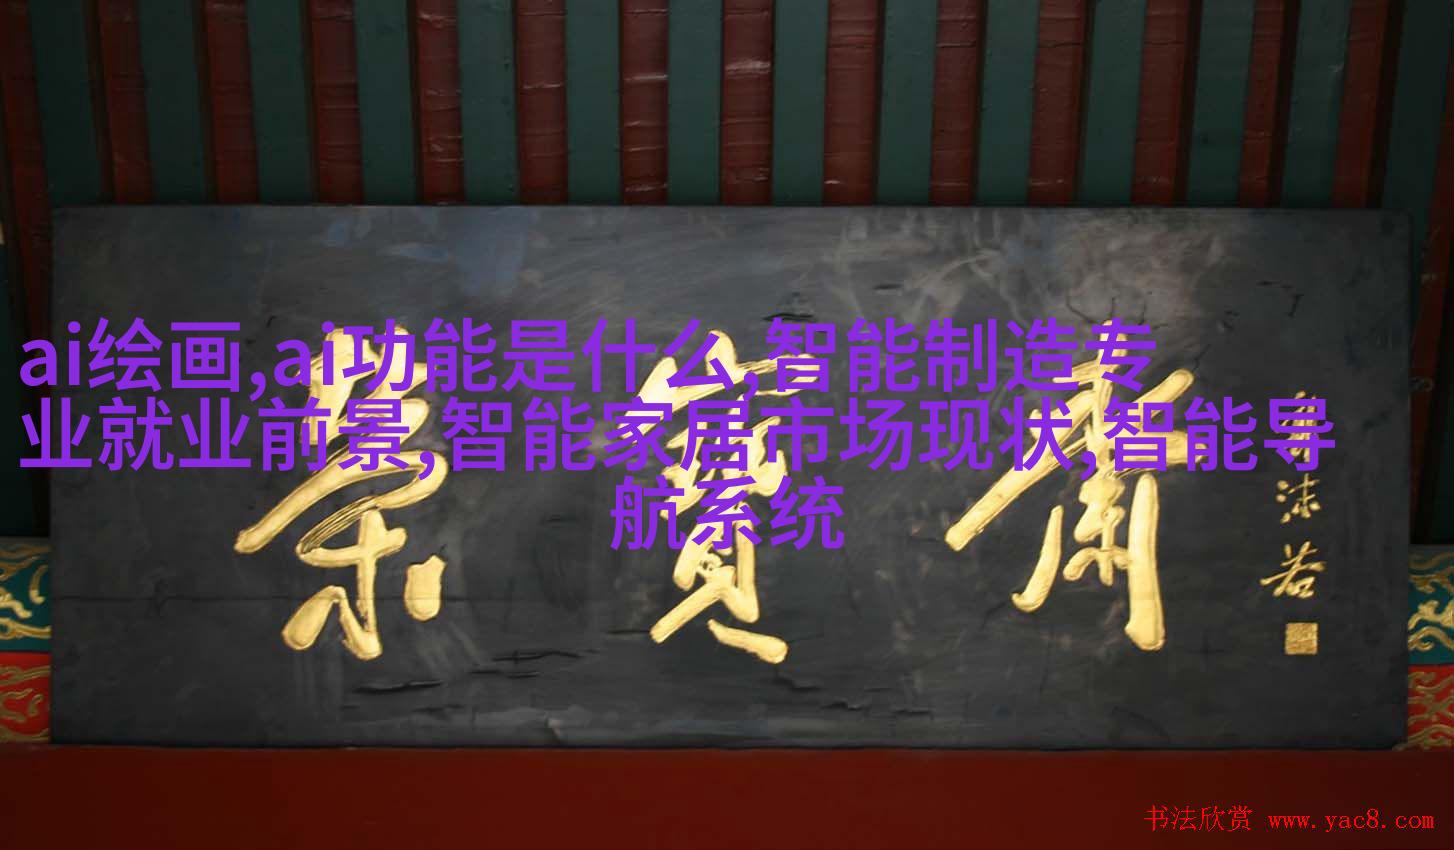 ai绘画,ai功能是什么,智能制造专
业就业前景,智能家居市场现状,智能导
航系统
荣寶齋
郭沫若
书法欣赏 www.yac8.com